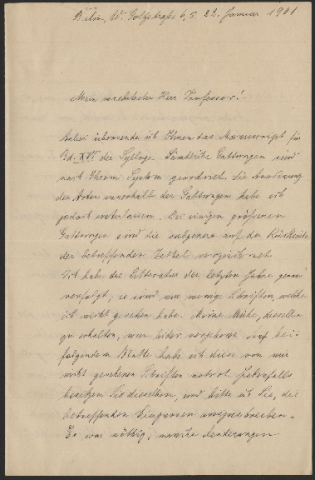 Berlin, W. Goltzstraße 6, 5. 22. Januar 1901
Mein verehrtester Herr Professor!
Anbei übersende ich Ihnen das Manuscript für
Bd. XVI der Sylloge. Sämtliche Gattungen sind
nach Ihrem System geordnet, die Anordnung
der Arten innerhalb der Gattungen habe ich
jedoch unterlassen. Bei einigen größeren
Gattungen sind die subgenera auf der Rückseite
der betreffenden Zettel verzeichnet.
Ich habe die Litteratur der letzten Jahre genau
verfolgt; es sind nur wenige Schriften, welche
ich nicht gesehen habe. Meine Mühe, dieselben
zu erhalten, war bisher vergebens. Auf bei-
folgendem Blatte habe ich diese von mir
nicht gesehenen Schriften notirt. Jedenfalls
besitzen Sie dieselben, und bitte ich Sie, die
betreffenden Diagnosen auszuschreiben.
Es war nöthig, manche Aenderungen